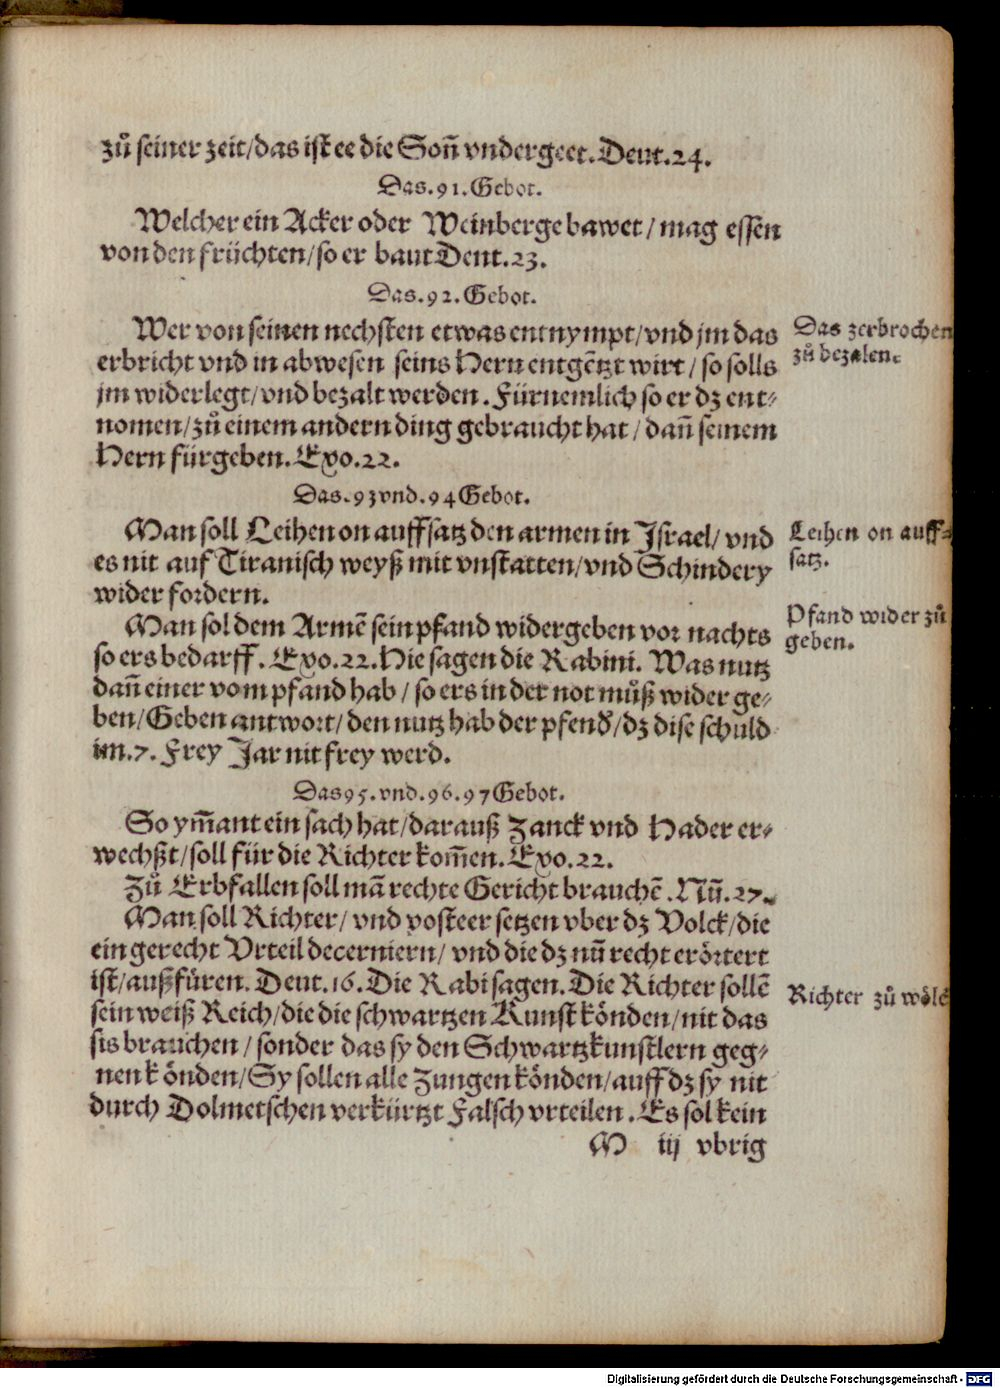 zů seiner zeit/das ist ee die Soñ vndergeet. Deut. 24.
Das. 91. Gebot.
Welcher ein Acker oder Weinberge bawet/ mag essen
von den früchten/so er baut Deut. 23.
Das. 92. Gebot.
Wer von seinen nechsten etwas entnympt/vnd jm das
erbricht vnd in abwesen seins Hern entgẽtzt wirt/ so solls
jm widerlegt/vnd bezalt werden. Fürnemlich so er dz ent-
nomen/zů einem andern ding gebraucht hat/ dañ seinem
Hern fürgeben. Exo. 22.
Das zerbrochen
zů bezalen.
Das. 93 vnd. 94 Gebot.
Man soll Leihen on auffsatz den armen in Israel/ vnd
es nit auf Tiranisch weyß mit vnstatten/vnd Schindery
wider fordern.
Leihen on auff-
satz.
Man sol dem Armẽ sein pfand widergeben vor nachts
so ers bedarff. Exo. 22. Hie sagen die Rabini. Was nutz
dañ einer vom pfand hab/ so ers in der not můß wider ge-
ben/Geben antwort/den nutz hab der pfend/dz dise schuld
im. 7. Frey Jar nit frey werd.
Pfand wider zů
geben.
Das 95. vnd. 96. 97 Gebot.
So ym̃ant ein sach hat/darauß Zanck vnd Hader er-
wechßt/soll für die Richter kom̃en. Exo. 22.
Zů Erbfallen soll mã rechte Gericht brauchẽ. Nũ. 27.
Man soll Richter/ vnd vosteer setzen vber dz Volck/die
ein gerecht Vrteil decerniern/ vnd die dz nũ recht erörtert
ist/außfüren. Deut. 16. Die Rabi sagen. Die Richter sollẽ
sein weiß Reich/die die schwartzen Kunst könden/nit das
sis brauchen/ sonder das sy den Schwartzkunstlern geg-
nen könden/Sy sollen alle Zungen könden/auff dz sy nit
durch Dolmetschen verkürtzt Falsch vrteilen. Es sol kein
Richter zů wölẽ
M iij vbrig
Digitalisierung gefördert durch die Deutsche Forschungsgemeinschaft - DFG